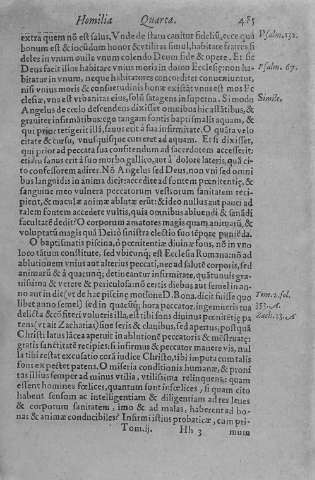 Homilia Quarta. 485
extra quem nō est salus, Vnde de statu canitur fidelib', ecce quā Psalm. 132.
bonum est & iocūdum honor & vtilitas simul, habitate fratres fideles
in vnum ouile vnum colendo Deum fide & opere. Et sic
Deus facit illos habitare vnius moris in domo Ecclesię: non habitat Psalm. 67.
in vnum, neque habitatores concorditer conueniuntur,
nisi vnius moris & consuetudinis
Angelus de cęlo descendens dixisset omnibus
grauiter infirmātibus: ego tangam fontis baptismalis aquam, &
qui prior tetigerit illā, sanus erit à sua infirmitate. O quāta velocitate
& cursu, vnusquisque curreret ad aquam. Et si dixisset,
qui prior ad peccata sua confitendum ad sacerdotem accesserit:
etiā hic sanus erit à suo morbo gallico, aut à dolore lateris, quā cito
confessorem adiret. Nō Angelus sed Deus, non vni sed omnibus
languidis in anima dicit: accedite ad fontem pœnitentię, &
sanguine meo vulnera peccatorum vestrorum sanitatem recipient,
& maculæ animæ ablutæ erūt: & ideo nullus aut pauci ad
talem fontem accedere vultis, quia omnibus abluendi & sanādi
facultatē dedit? O corporum amatores magis quam animarū, &
voluptatū magis quā Dei: ò sinistra electio suo tēpore puniēda.
O baptismatis piscina, ò pœnitentiæ diuinæ fons, nō in vno
loco tātum constitute, sed vbicunq; est Ecclesia Romana: nō ad
ablutionem vnius aut alterius peccati, nec ad salutē corporis, sed
animarū & à quacunq; detineantur infirmitate, quātumuis grauissima
& vetere & periculosa: nō certis diebus aut semel in anno
aut in die (vt de hac piscinę motione D. Bona. dicit fuisse quolibet Tom. 2. fol.
anno semel) sed in quacūq; hora peccator, ingemueris tua 353. A.
delicta & cōfiteri volueris illa, est tibi fons diuinus pœnitētię patens Zach. 13. A
(vt ait Zacharias) sine seris & clauibus, sed apertus, postquā
Christi latus lācea apetuit in ablutionē peccatoris & mēstruatę:
gratis sanctitatē recipies: si infirmus & peccator manere vis, nulla
tibi restat excusatio corā iudice Christo, tibi imputa cum talis
fons ex peste patens. O miseria conditionis humanæ, & pronitas
illius semper ad minus vtilia, vtilissima relinquens: quam
essent homines fœlices, quantum sunt infœlices, si quam cito
habent sensom ac intelligentiam & diligentiam ad res leues
& corporum sanitatem, imo & ad malas, haberent ad bonas
& animæ conducibiles? Infirmi istius probaticæ, cam pri-
Tom. ij. Hh 3 mum